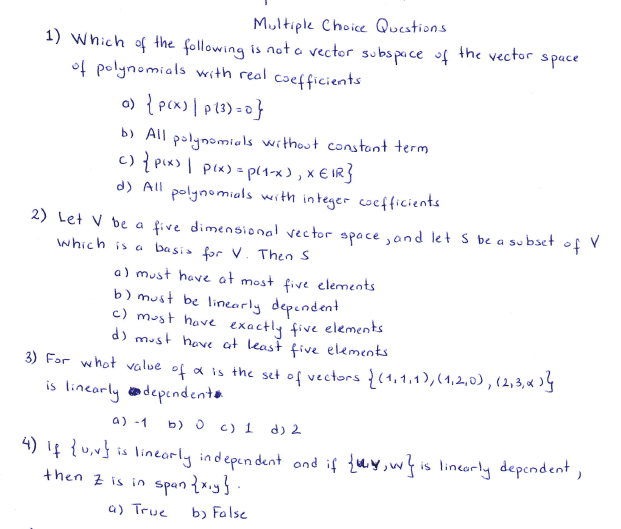 Multiple Choice Questions
1) Which of the following is not a vector subspace of the vector space
of polynomials with real coefficients
a) { p(x) | p(3) = 0 }
b) All polynomials without constant term
c) { p(x) | p(x) = p(1-x) , x ∈ IR }
d) All polynomials with integer coefficients
2) Let V be a five dimensional vector space , and let S be a subset of V
which is a basis for V. Then S
a) must have at most five elements
b) must be linearly dependent
c) must have exactly five elements
d) must have at least five elements
3) For what value of α is the set of vectors { (1,1,1), (1,2,0) , (2,3,α ) }
is linearly dependent
a) -1 b) 0 c) 1 d) 2
4) If {u,v} is linearly independent and if { v,w} is linearly dependent ,
then z is in span {x,y} .
a) True b) False